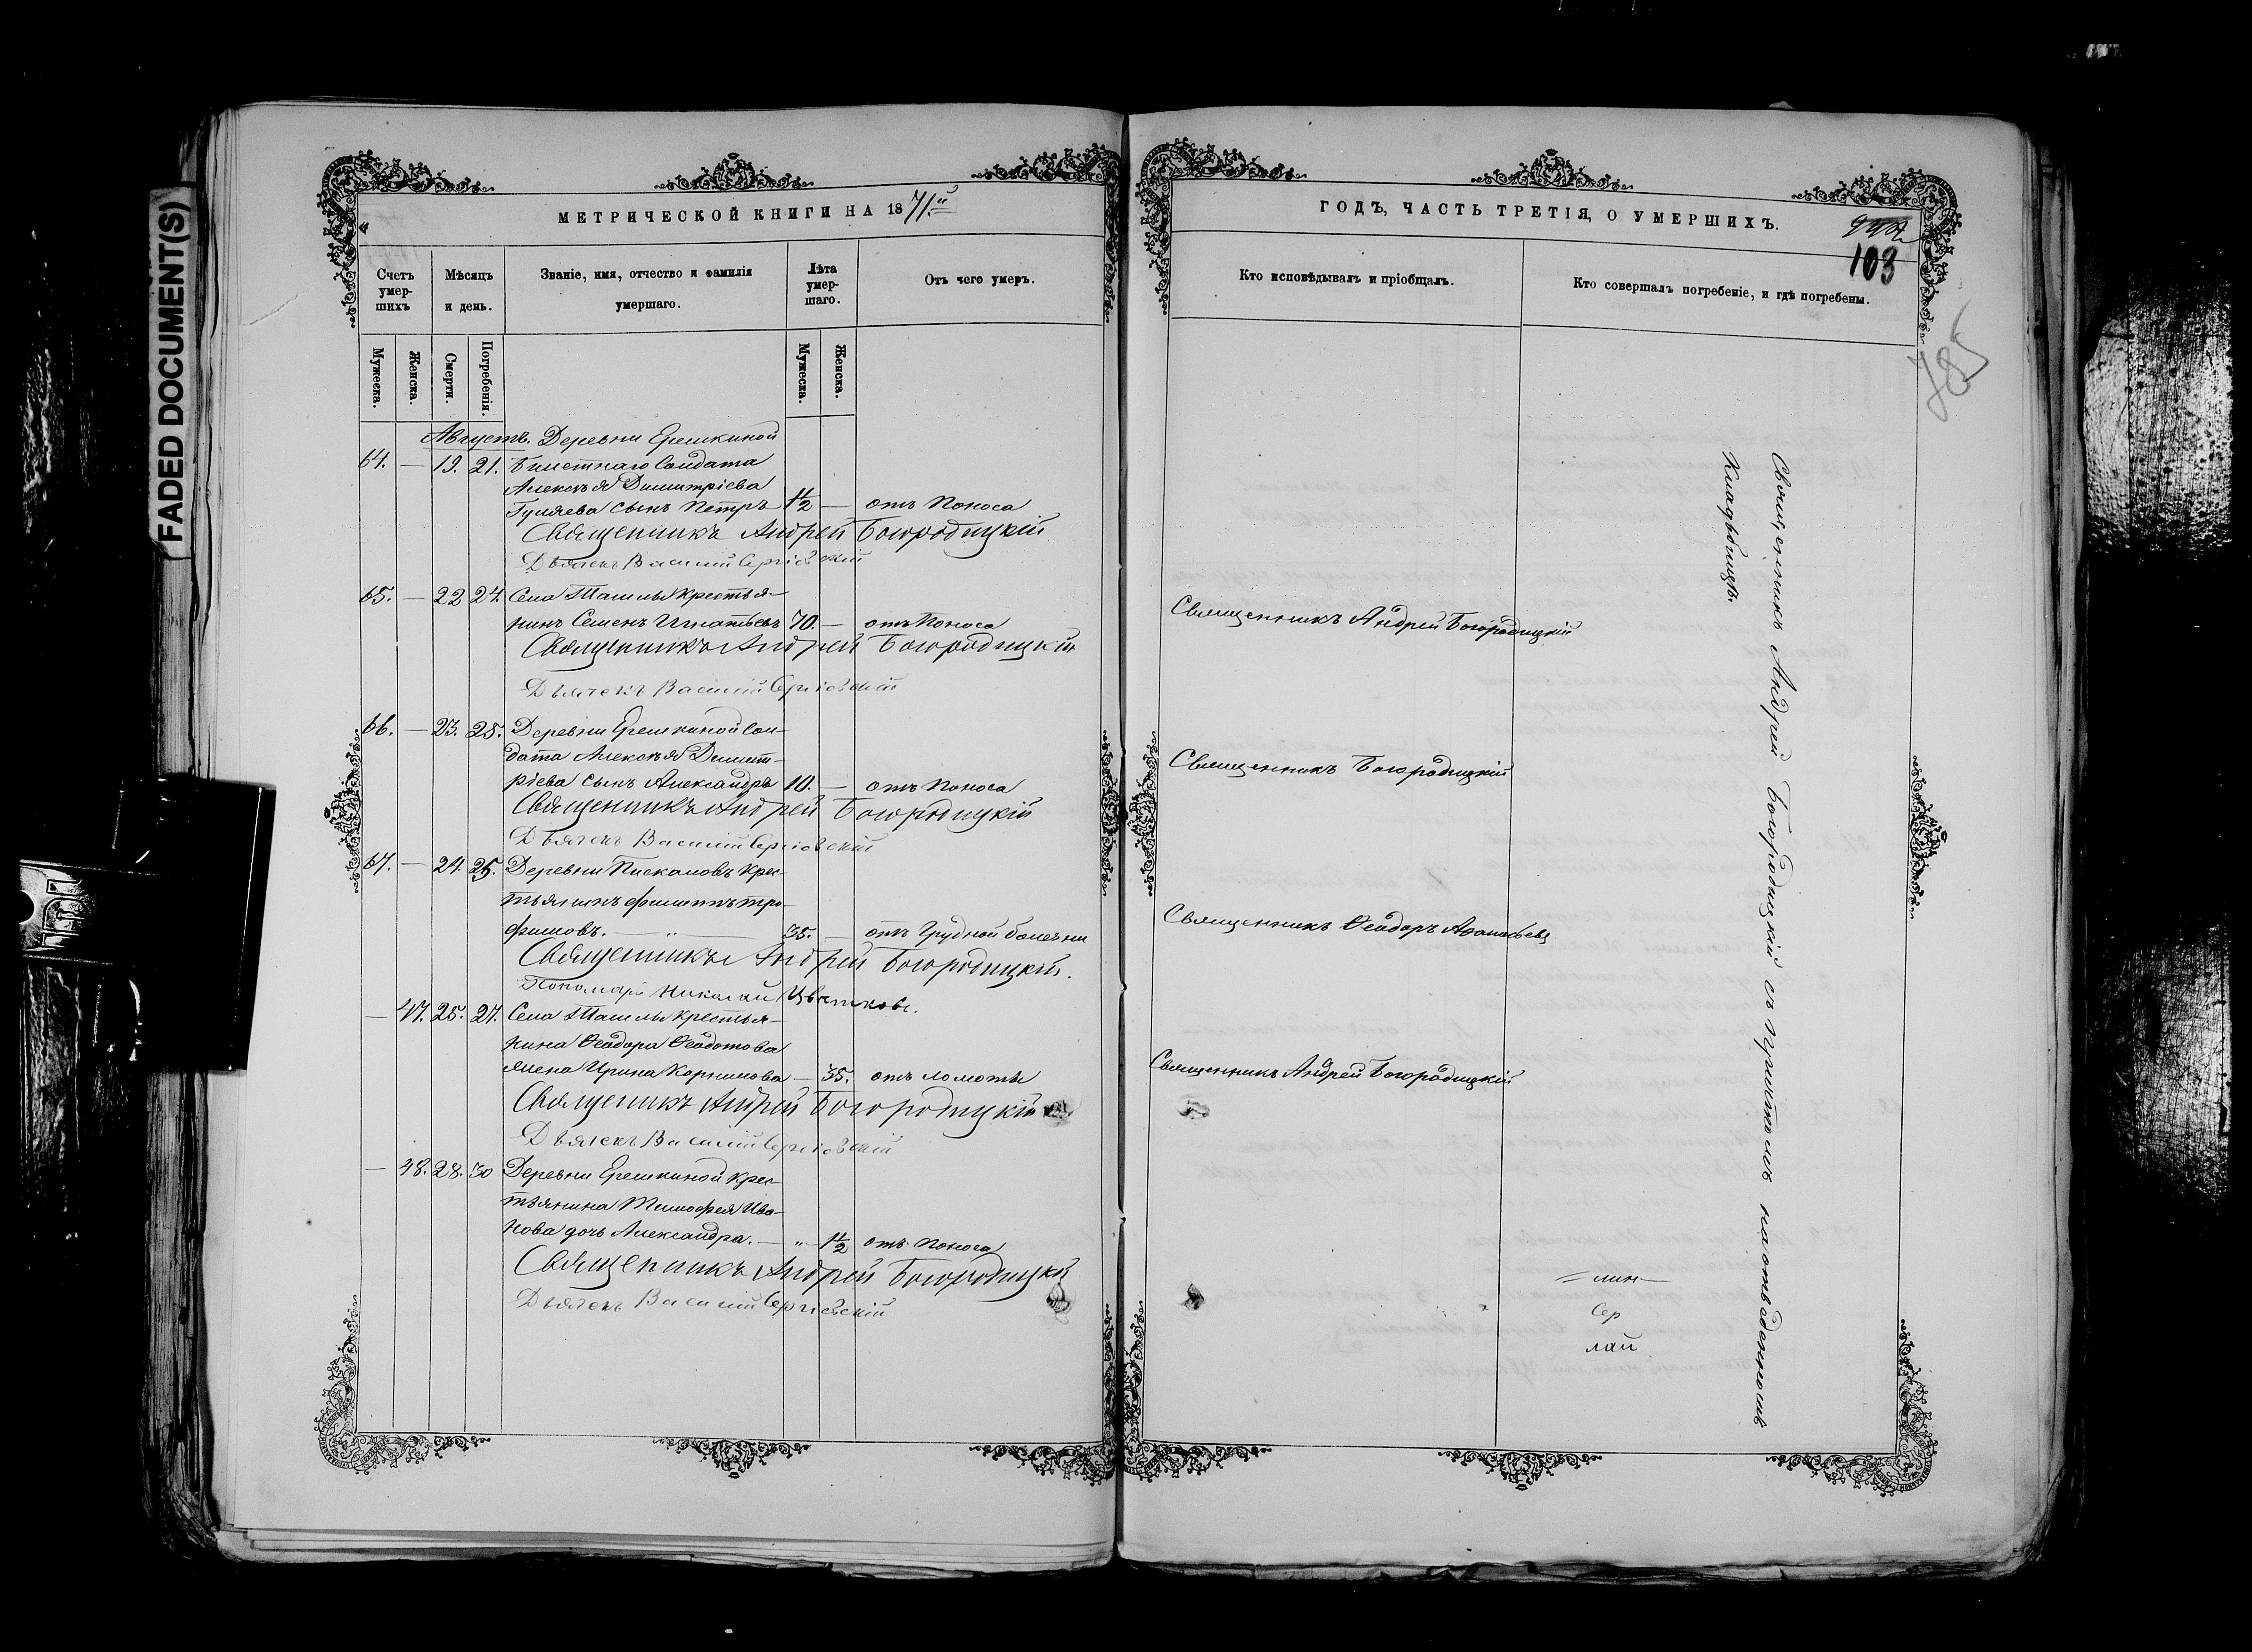 FADED DOCUMENT(S)
МЕТРИЧЕСКОЙ КНИГИ НА 1871.й
Счетъ умер-шихъ
Мѣсяцъ и день.
Званіе, имя, отчество и фамилія умершаго.
Лѣта умер-шаго.
Отъ чего умеръ.
Мужеска.
Женска.
Смерти.
Погребенія.
Мужеска.
Женска.
Августъ. Деревни Ерешкиной
64. — 19. 21. Билетнаго Солдата
Алексѣя Димитріева
Гуляева сынъ Петръ 1½ — отъ Поноса
Священникъ Андрей Богородицкій
Дьячекъ Василій Сергіевскій
65. — 22 24. Села Ташлы крестья-
нинъ Семенъ Игнатьевъ 70. — отъ Поноса
Священникъ Андрей Богородицкій
Дьячекъ Василій Сергіевскій
66. — 23. 25. Деревни Ерешкиной Сол-
дата Алексѣя Димит-
ріева сынъ Александръ 10. — отъ Поноса
Священникъ Андрей Богородицкій
Дьячекъ Василій Сергіевскій
67. — 24. 25. Деревни Пискаловъ крес-
тьянинъ Филиппъ Тро-
фимовъ. — „ — 35. — отъ Грудной болезни
Священникъ Андрей Богородицкій.
Пономарь Николай Цвѣтковъ.
— 47. 25. 27. Села Ташлы крестья-
нина Ѳеодора Ѳедотова
жена Ирина Корнилова — 35. отъ ломоты
Священникъ Андрей Богородицкій
Дьячекъ Василій Сергіевскій
— 48. 28. 30 Деревни Ерешкиной крес-
тьянина Тимофея Ива-
нова дочь Александра. — „ — 1½ отъ Поноса
Священникъ Андрей Богородицкій
Дьячекъ Василій Сергіевскій
ГОДЪ, ЧАСТЬ ТРЕТІЯ, О УМЕРШИХЪ.
103
785
Кто исповѣдывалъ и пріобщалъ.
Кто совершалъ погребеніе, и гдѣ погребены.
Священникъ Андрей Богородицкій
Священникъ Богородицкій
Священникъ Ѳеодоръ
Священникъ Андрей Богородицкій
Священникъ Андрей Богородицкій съ причтомъ на отведенномъ
Кладбищѣ.
лин—
Сер
лай